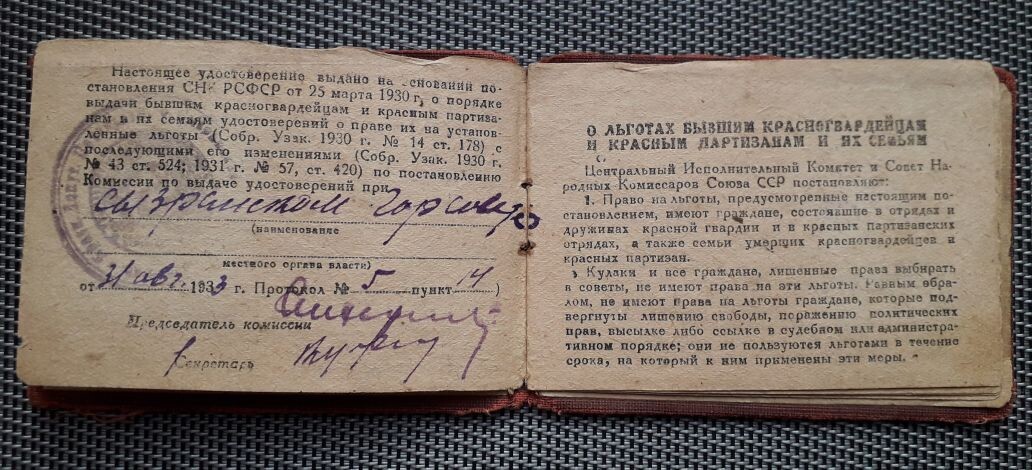 Настоящее удостоверение выдано на основании по-
становления СНК РСФСР от 25 марта 1930 г. о порядке
выдачи бывшим красногвардейцам и красным партиза-
нам и их семьям удостоверений о праве их на установ-
ленные льготы (Собр. Узак. 1930 г. № 14 ст. 178) с
последующими его изменениями (Собр. Узак. 1930 г.
№ 43 ст. 524; 1931 г. № 57, ст. 420) по постановлению
Комиссии по выдаче удостоверений при
Сызранском Горсовете
(наименование
местного органа власти)
от 31 авг. 1933 г. Протокол № 5 пункт 14)
Председатель комиссии
Секретарь
О ЛЬГОТАХ БЫВШИМ КРАСНОГВАРДЕЙЦАМ
И КРАСНЫМ ПАРТИЗАНАМ И ИХ СЕМЬЯМ
Центральный Исполнительный Комитет и Совет На-
родных Комиссаров Союза ССР постановляют:
1. Право на льготы, предусмотренные настоящим по-
становлением, имеют граждане, состоявшие в отрядах и
дружинах красной гвардии и в красных партизанских
отрядах, а также семьи умерших красногвардейцев и
красных партизан.
Кулаки и все граждане, лишенные права выбирать
в советы, не имеют права на эти льготы. Равным обра-
лом, не имеют права на льготы граждане, которые под-
вергнуты лишению свободы, поражению политических
прав, высылке либо ссылке в судебном или администра-
тивном порядке; они не пользуются льготами в течение
срока, на который к ним применены эти меры.